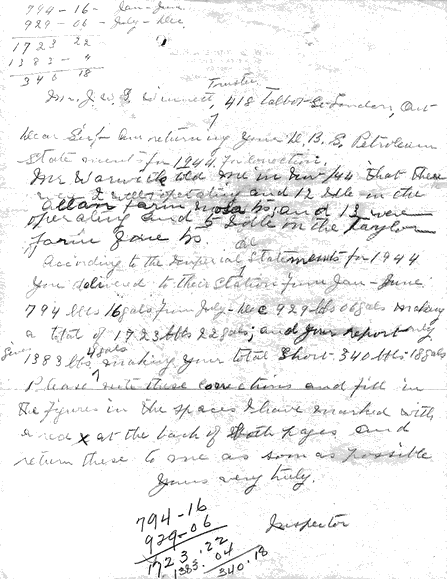 794 - 16 - Jan - June
929 - 06 - July - Dec.
1723 22
1383 - 4
340 18
Trustee
Mr. J. W. G. Winnett, 418 Talbot St. London, Ont
Dear Sir/- Am returning your D. B. S. Petroleum
Statement for 1944 for correction.
Mr Warwick told me in Nov/44 that there
operating and 12 Idle in the
farm
operating and 5 Idle on the Taylor
farm
Oil
According to the Imperial Statements for 1944
you delivered to their station from Jan - June
794 bbls 16 gals from July - Dec 929 bbls 06 gals making
a total of 1723 bbls 22 gals; and your report only
gives 1383 bbs, 4 gals making your total short 340 bbls - 18 gals
Please note these corrections and fill in
the figures in the spaces I have marked with
a red x at the back of both pages and
return these to me as soon as possible
Yours very truly.
Inspector
794 - 16
929 - 06
1723 . 22
1383 . 04
340 . 18